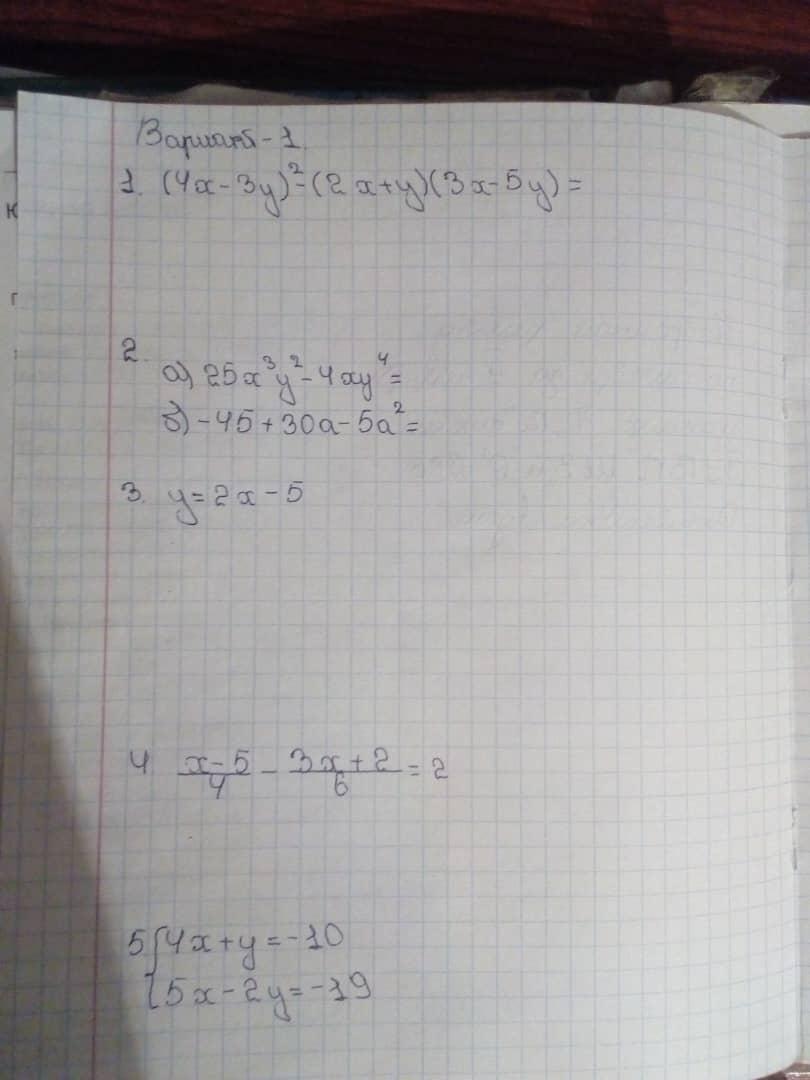 Вариант-1.
1. (4x-3y)²-(2x+y)(3x-5y)=
2.
а) 25x³y²-4xy⁴=
б) -45+30a-5a²=
3. y=2x-5
4 x-5/4 - 3x+2/6 = 2
5. {4x+y=-10
{5x-2y=-19